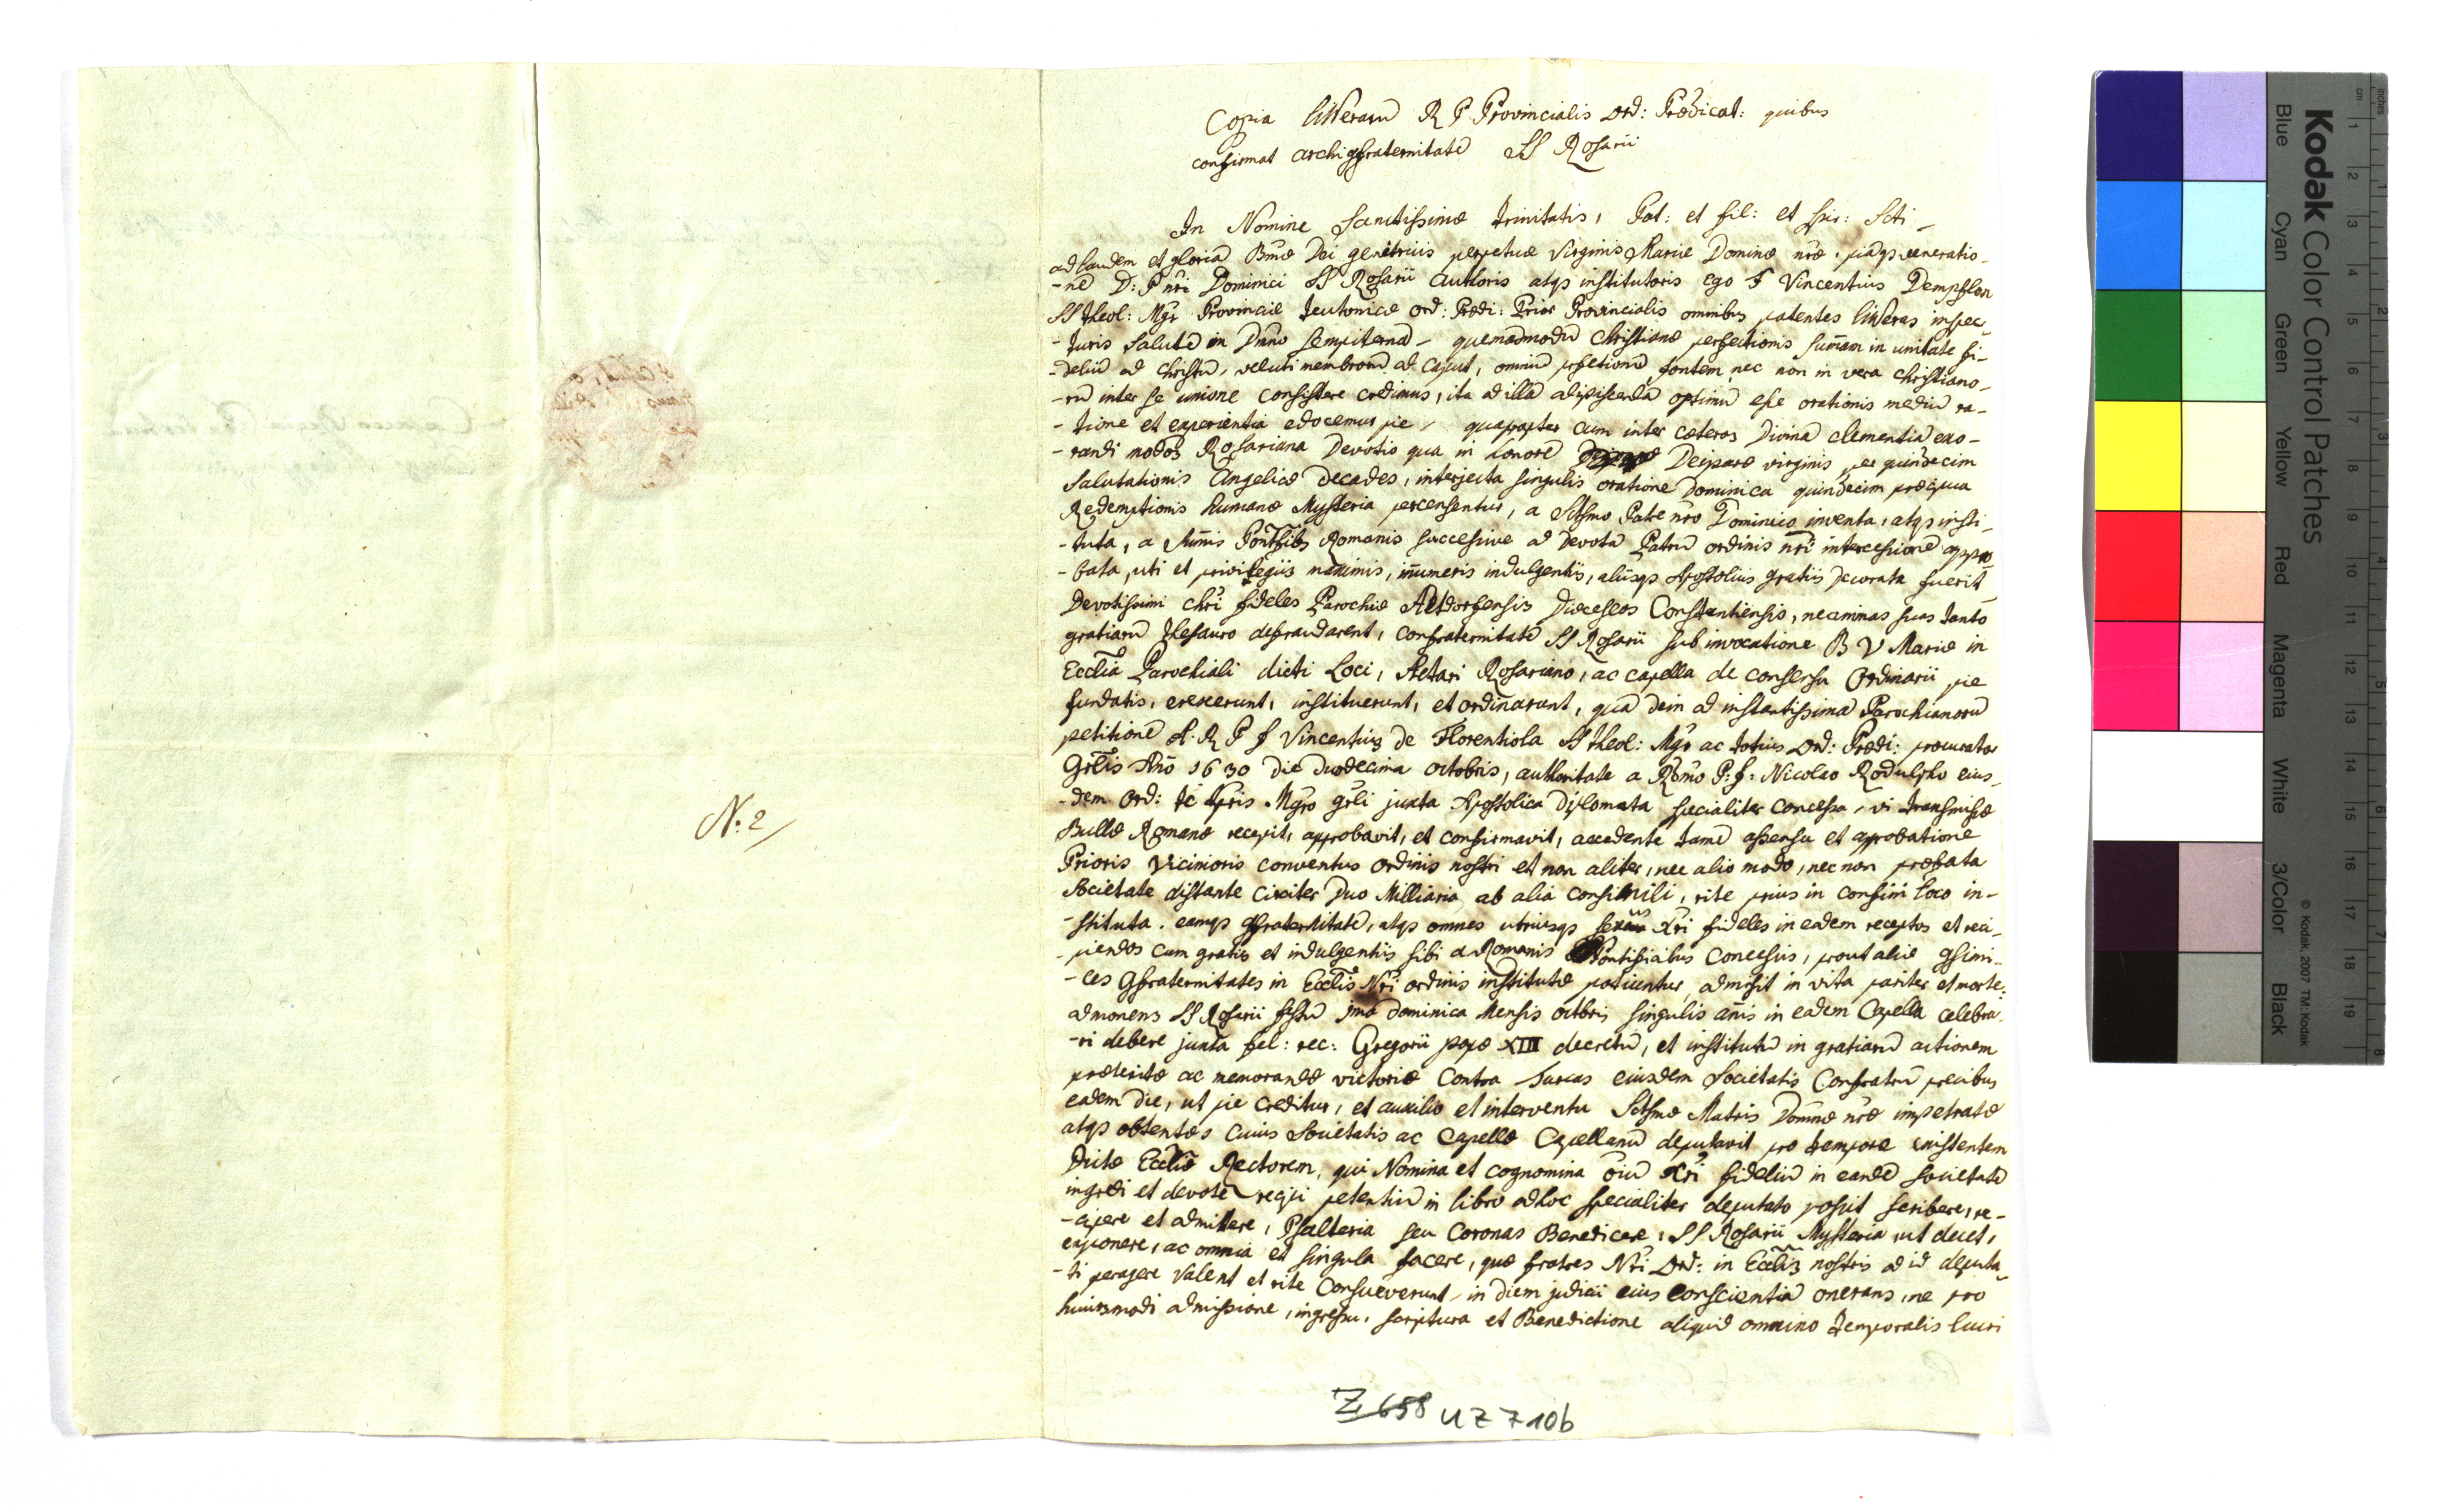 N: 2/
Copia litterarū R P Provincialis Ord: Prædicat: quibus
confirmat archigfraternitatē SS Rosarii
In Nomine Sanctissimæ trinitatis, Pat: et fil: et spir: Scti –
ad laudem et gloriā Bmæ Dei genetricis perpetuæ Virginis Mariæ Dominæ nræ, piāqз veneratio-
-nē D: P nri Dominici SS Rosarii Authoris atqз institutoris Ego F Vincentius
SS theol: Mgr Provinciæ Teutonicæ Ord: Prædi: Prior Provincialis omnibus patentes litteras inspec-
-turis Salutē in Dnno sempiternā – quemadmodū Christianæ perfectionis sum̄am in unitate fi-
-deliū ad christū, veluti membrorū ad Caput, omniū pfectionū fontem, nec non in vera christiano-
-rū inter se unione consistere credimus, ita ad illā adipiscendā optimū esse orationis mediū ra-
-tione et experientia edocemur pie, quapropter cum inter cæteros Divinā clementiā exo-
-randi modos Rosariana Devotio qua in honorē Deiparæ virginis per quindecim
Salutationis Angelicæ Decades, interjecta singulis oratione Dominica quindecim præcipua
Redemptionis humanæ Mysteria percensentur, a Sctsmo Patre nro Dominico inventa, atqз insti-
-tuta, a Sum̄is Pontificibs Romanis successive ad devotā Patrū ordinis nri intercessionē appro-
-bata, uti et privilegiis maximis, in̄umeris indulgentiis, aliisqз Apostolicis gratiis decorata fuerit
Devotissimi Chri fideles Parochiæ Altdorfensis Diæceseos Constantiensis, ne animas suas tanto
gratiarū thesauro defraudarent, confraternitatē SS Rosarii sub invocatione B V Mariæ in
Ecclia Parochiali dicti Loci, Altari Rosariano, ac capella de consensu Ordinarii pie
fundatis, erexerunt, instituerunt, et ordinarunt, quā dein ad instantissimā Parochianorū
petitionē A. R P f Vincentius de Florentiola SS theol: Mgr ac totius Ord: Prædi: procurator
Grlis An̄o 1630 die duodecima octobris, authoritate a Rmo P: f: Nicolao Rodulpho eius-
-dem Ord: Mgro grli juxta Apostolica Diplomata specialiter concessa, vi transmissæ
Bullæ Romanæ recepit, approbavit, et confirmavit, accedente tamē assensu et aprobatione
Prioris Vicinioris conventus ordinis nostri et non aliter, nec alio modo, nec non probata
Societate distante circiter Duo Milliaria ab alia consimili, rite prius in consimi loco in-
-stituta. eamqз gfraternitatē, atqз omnes utriusqз sexus Xri fideles in eadem receptos et reci-
-piendos cum gratiis et indulgentiis sibi a Romanis Pontificibus concessis, prout aliæ gsimi-
-les Gfraternitates in Ecclis Nri ordinis institutæ potiuntur, admisit in vita pariter et morte:
admonens SS Rosarii festū 1ma Dominica Mensis octbris singulis an̄is in eadem Capella celebra-
-ri debere juxta fel: rec: Gregorii papæ XIII decretū, et institutū in gratiarū actionem
præteritæ ac memorandæ victoriæ contra Turcas eiusdem Societatis Confratrū precibus
eadem die, ut pie creditur, et auxilio et interventu Sctsmæ Matris Dominæ nræ impetratæ
atqз obtentæs cuius Societatis ac Capellæ Capellanū deputavit pro tempore existentem
dictæ Eccliæ Rectorem, qui Nomina et cognomina oiū Xri fideliū in eandē societatē
ingredi et devotè recipi petentiū in libro adhoc specialiter deputato possit scribere, re-
-cipere et admittere, Psalteria seu Coronas Benedicere, SS Rosarii Mysteria, ut decet,
exponere, ac omnia et singula facere, quæ fratres Nri Ord: in Ecclis nostris ad id deputa-
-ti peragere valent et rite consueverunt, in diem judicii eius conscientiā onerans, ne pro
huiusmodi admissione, ingressu, scriptura et Benedictione aliquid omnino temporalis lucri
Z 658 UZ 7 106
Kodak Color Control Patches
Blue Cyan Green Yellow Red Magenta White 3/Color Black
© Kodak 2007 TM: Kodak
inches 1 2 3 4 5 6 7 8
cm 1 2 3 4 5 6 7 8 9 10 11 12 13 14 15 16 17 18 19